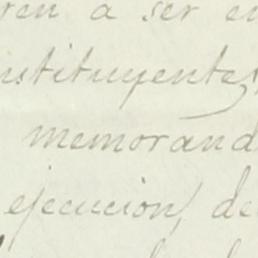 ren a ser en
nstituyentes
memorand
ejecucion, de